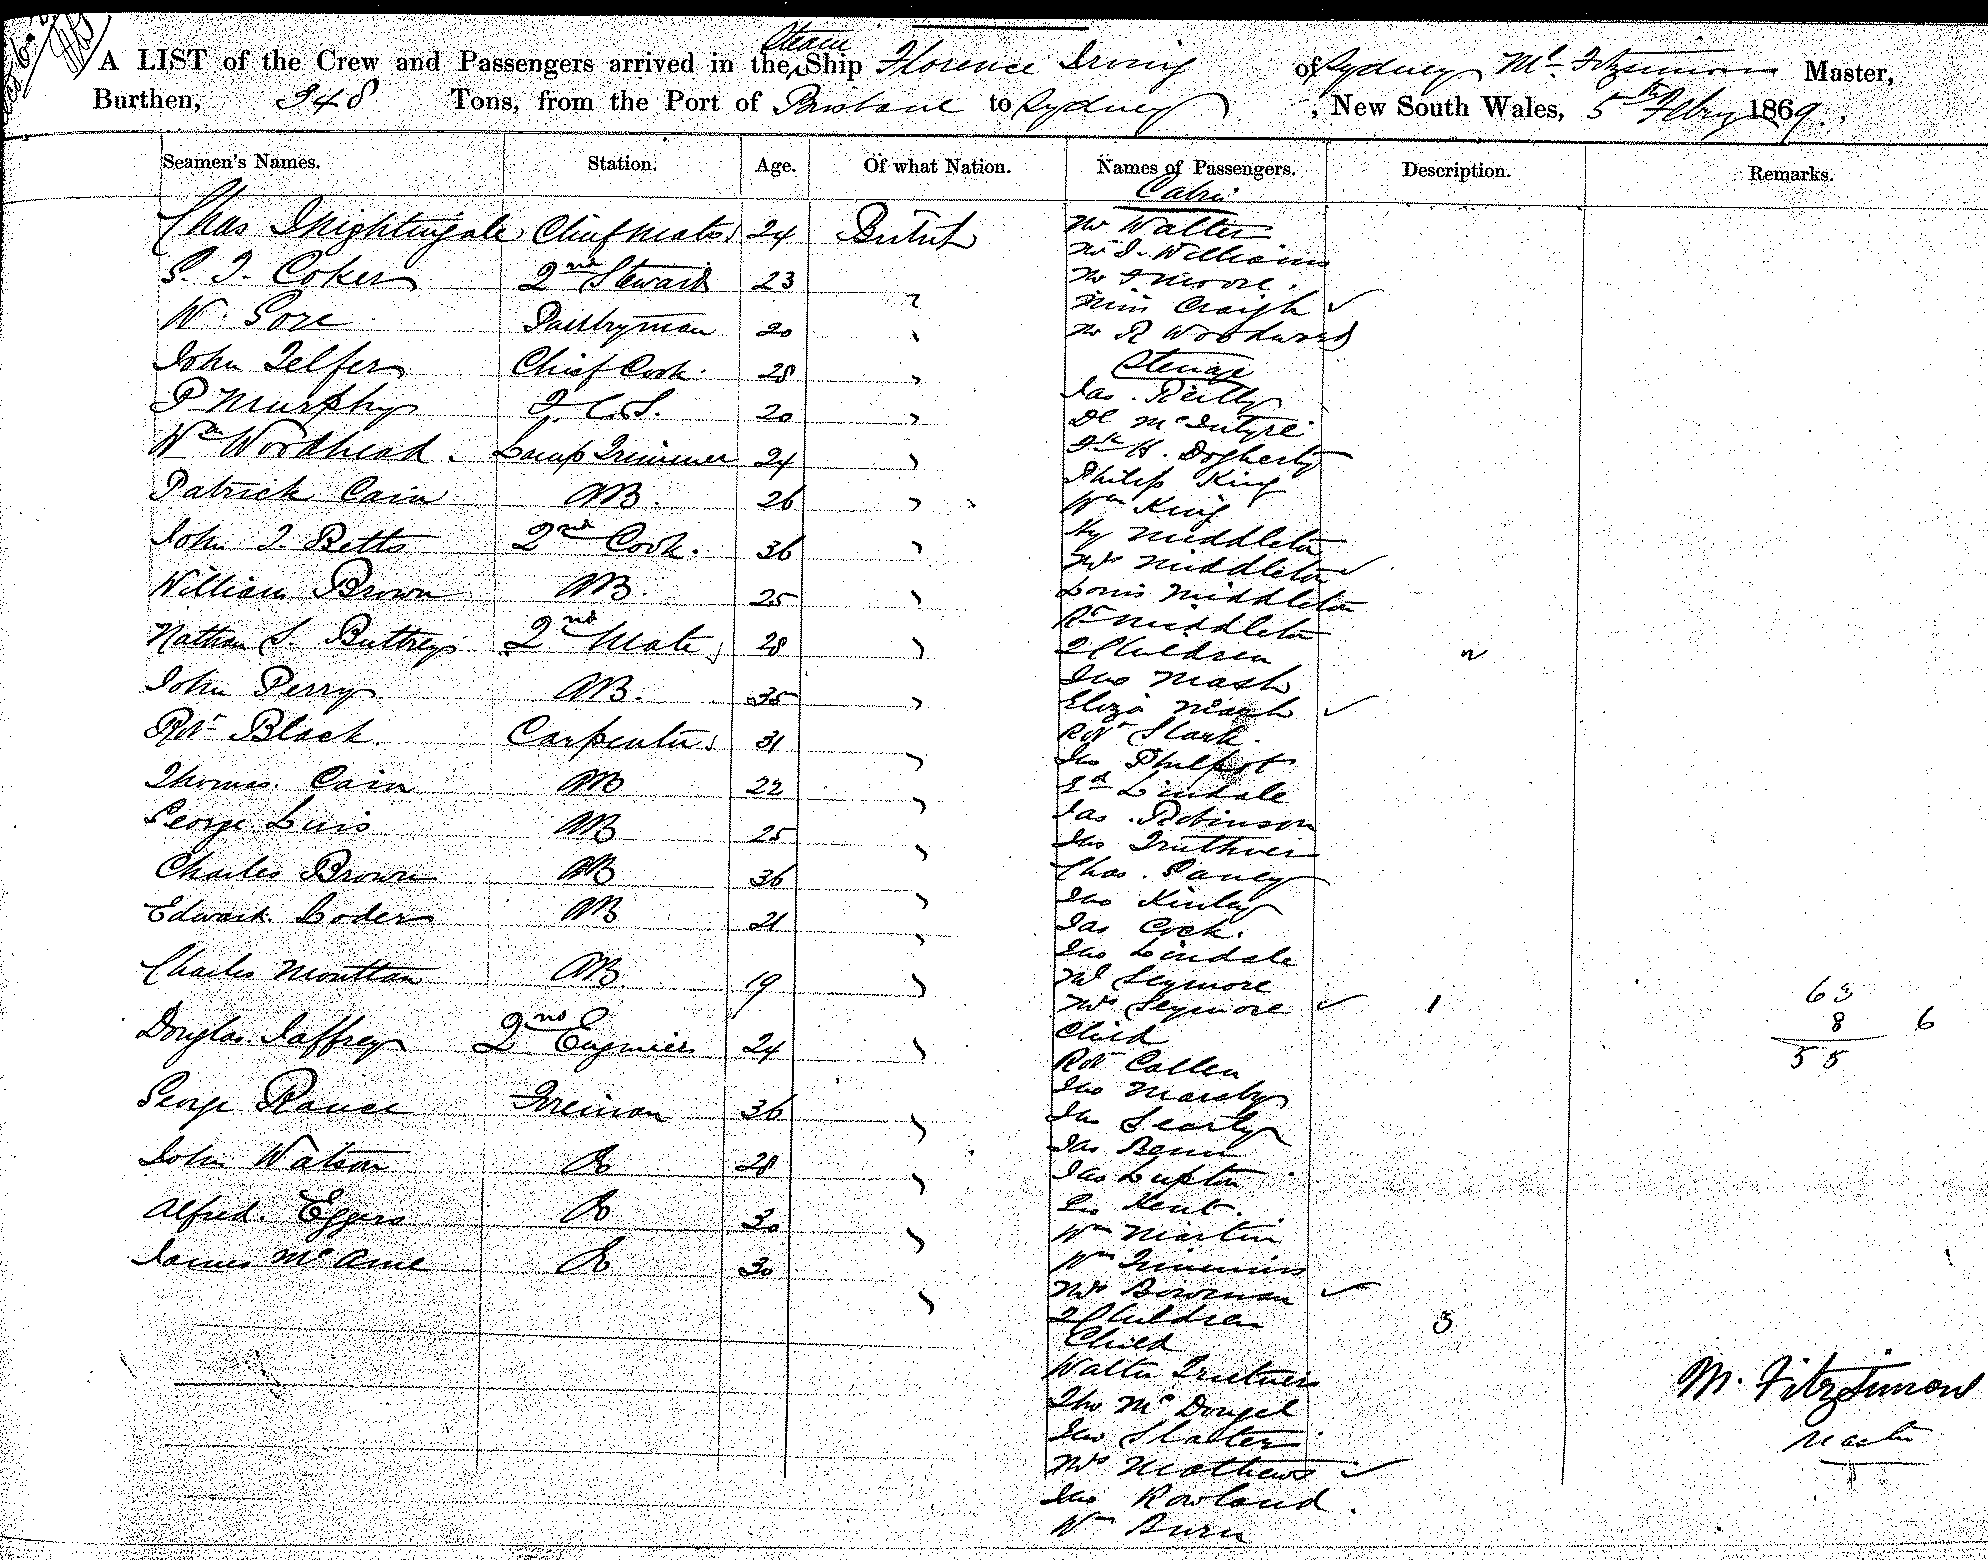 A LIST of the Crew and Passengers arrived in the Steam Ship Florence Irving of Sydney Mr Fitzsimons Master,
Burthen, 348 Tons, from the Port of Brisbane to Sydney, New South Wales, 5th Febry 1869.
Seamen's Names. Station. Age. Of what Nation. Names of Passengers. Description. Remarks.
Cabin
Chas Nightingale Chief Mate 24 British
Mr Walter
Mr J. Williams
S. J. Coker 2nd Steward 23 "
Mr J Moore.
Miss Craigh ✓
W. Gore Pantryman 20 "
Mr R Woodward
John Telfer Chief Cook. 28 "
Steerage
Jas. Reilly
P Murphy 20 "
Dl McIntyre
Wm Woodhead. Lamp Trimmer 24 "
H. Dogherty
Philip King
Patrick Cain AB. 26 "
Wm King
John J Betts 2nd Cook. 36 "
Hy Middleton
Mrs Middleton ✓
William Brown AB. 25 "
Louis Middleton
Middleton
Nathan S. Buttrey 2nd Mate 28 "
2 Children 2
John Perry AB. 35 "
Jno Mash
Eliza Mash ✓
Robt Black. Carpenter 31 "
Robt Slark.
Jno Philpot
Thomas Cain AB 22 "
Lindale
George Luis AB 25 "
Jas. Robinson
Jno
Charles Brown AB 36 "
Chas.
Jno Kinlay
Edward Loder AB 21 "
Jas
Jno Lindale
Charles Mouttan AB. 19 "
Mr Seymore
Mrs Seymore ✓ 1
63
8 6
55
Douglas Jaffrey 2nd Engineer 24 "
Child
Robt Callen
Jno Marsby
George Rouse Fireman 36 "
Jno
Jas
John Watson 28 "
Jas Lupton
Geo Kent.
Alfred. Eggers 30 "
Wm Martin
James 30 "
Wm Timmins
Mrs Bowman ✓
2 Children 3
Child
Walter
M. Fitzsimons
Master
Tho McDougel
Jno Slatter
Mrs Mathews ✓
Jno Rowland.
Wm Burn